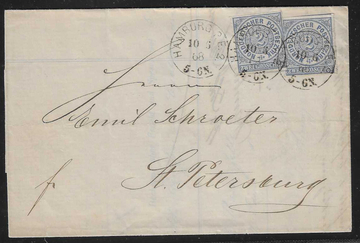 HAMBURG
10 6
68
5-6N.
NORDDEUTSCHER POSTBEZIRK
NORDDEUTSCHER POSTBEZIRK
5-6N.
5-6N.
Herrn
Emil Schroeter
fr
St. Petersburg